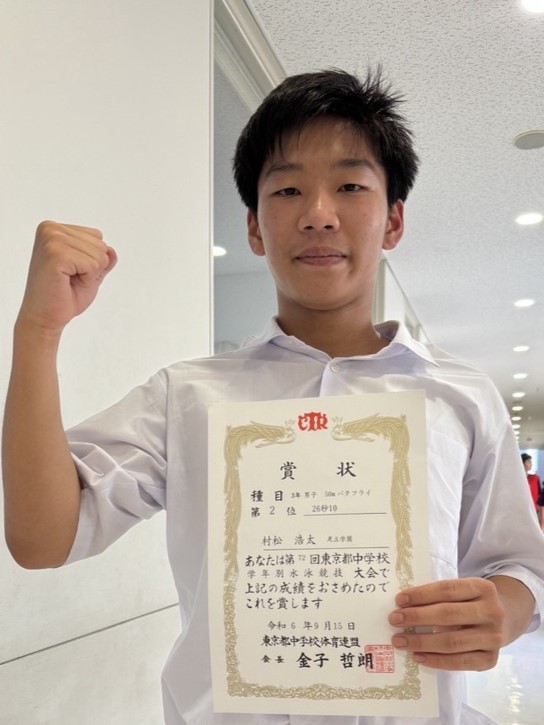 賞状
種目 3年男子 50mバタフライ
第2位 26秒10
村松 浩太 足立学園
あなたは第72回東京都中学校
学年別水泳競技 大会で
上記の成績をおさめたので
これを賞します
令和6年9月15日
東京都中学校体育連盟
会長 金子哲朗